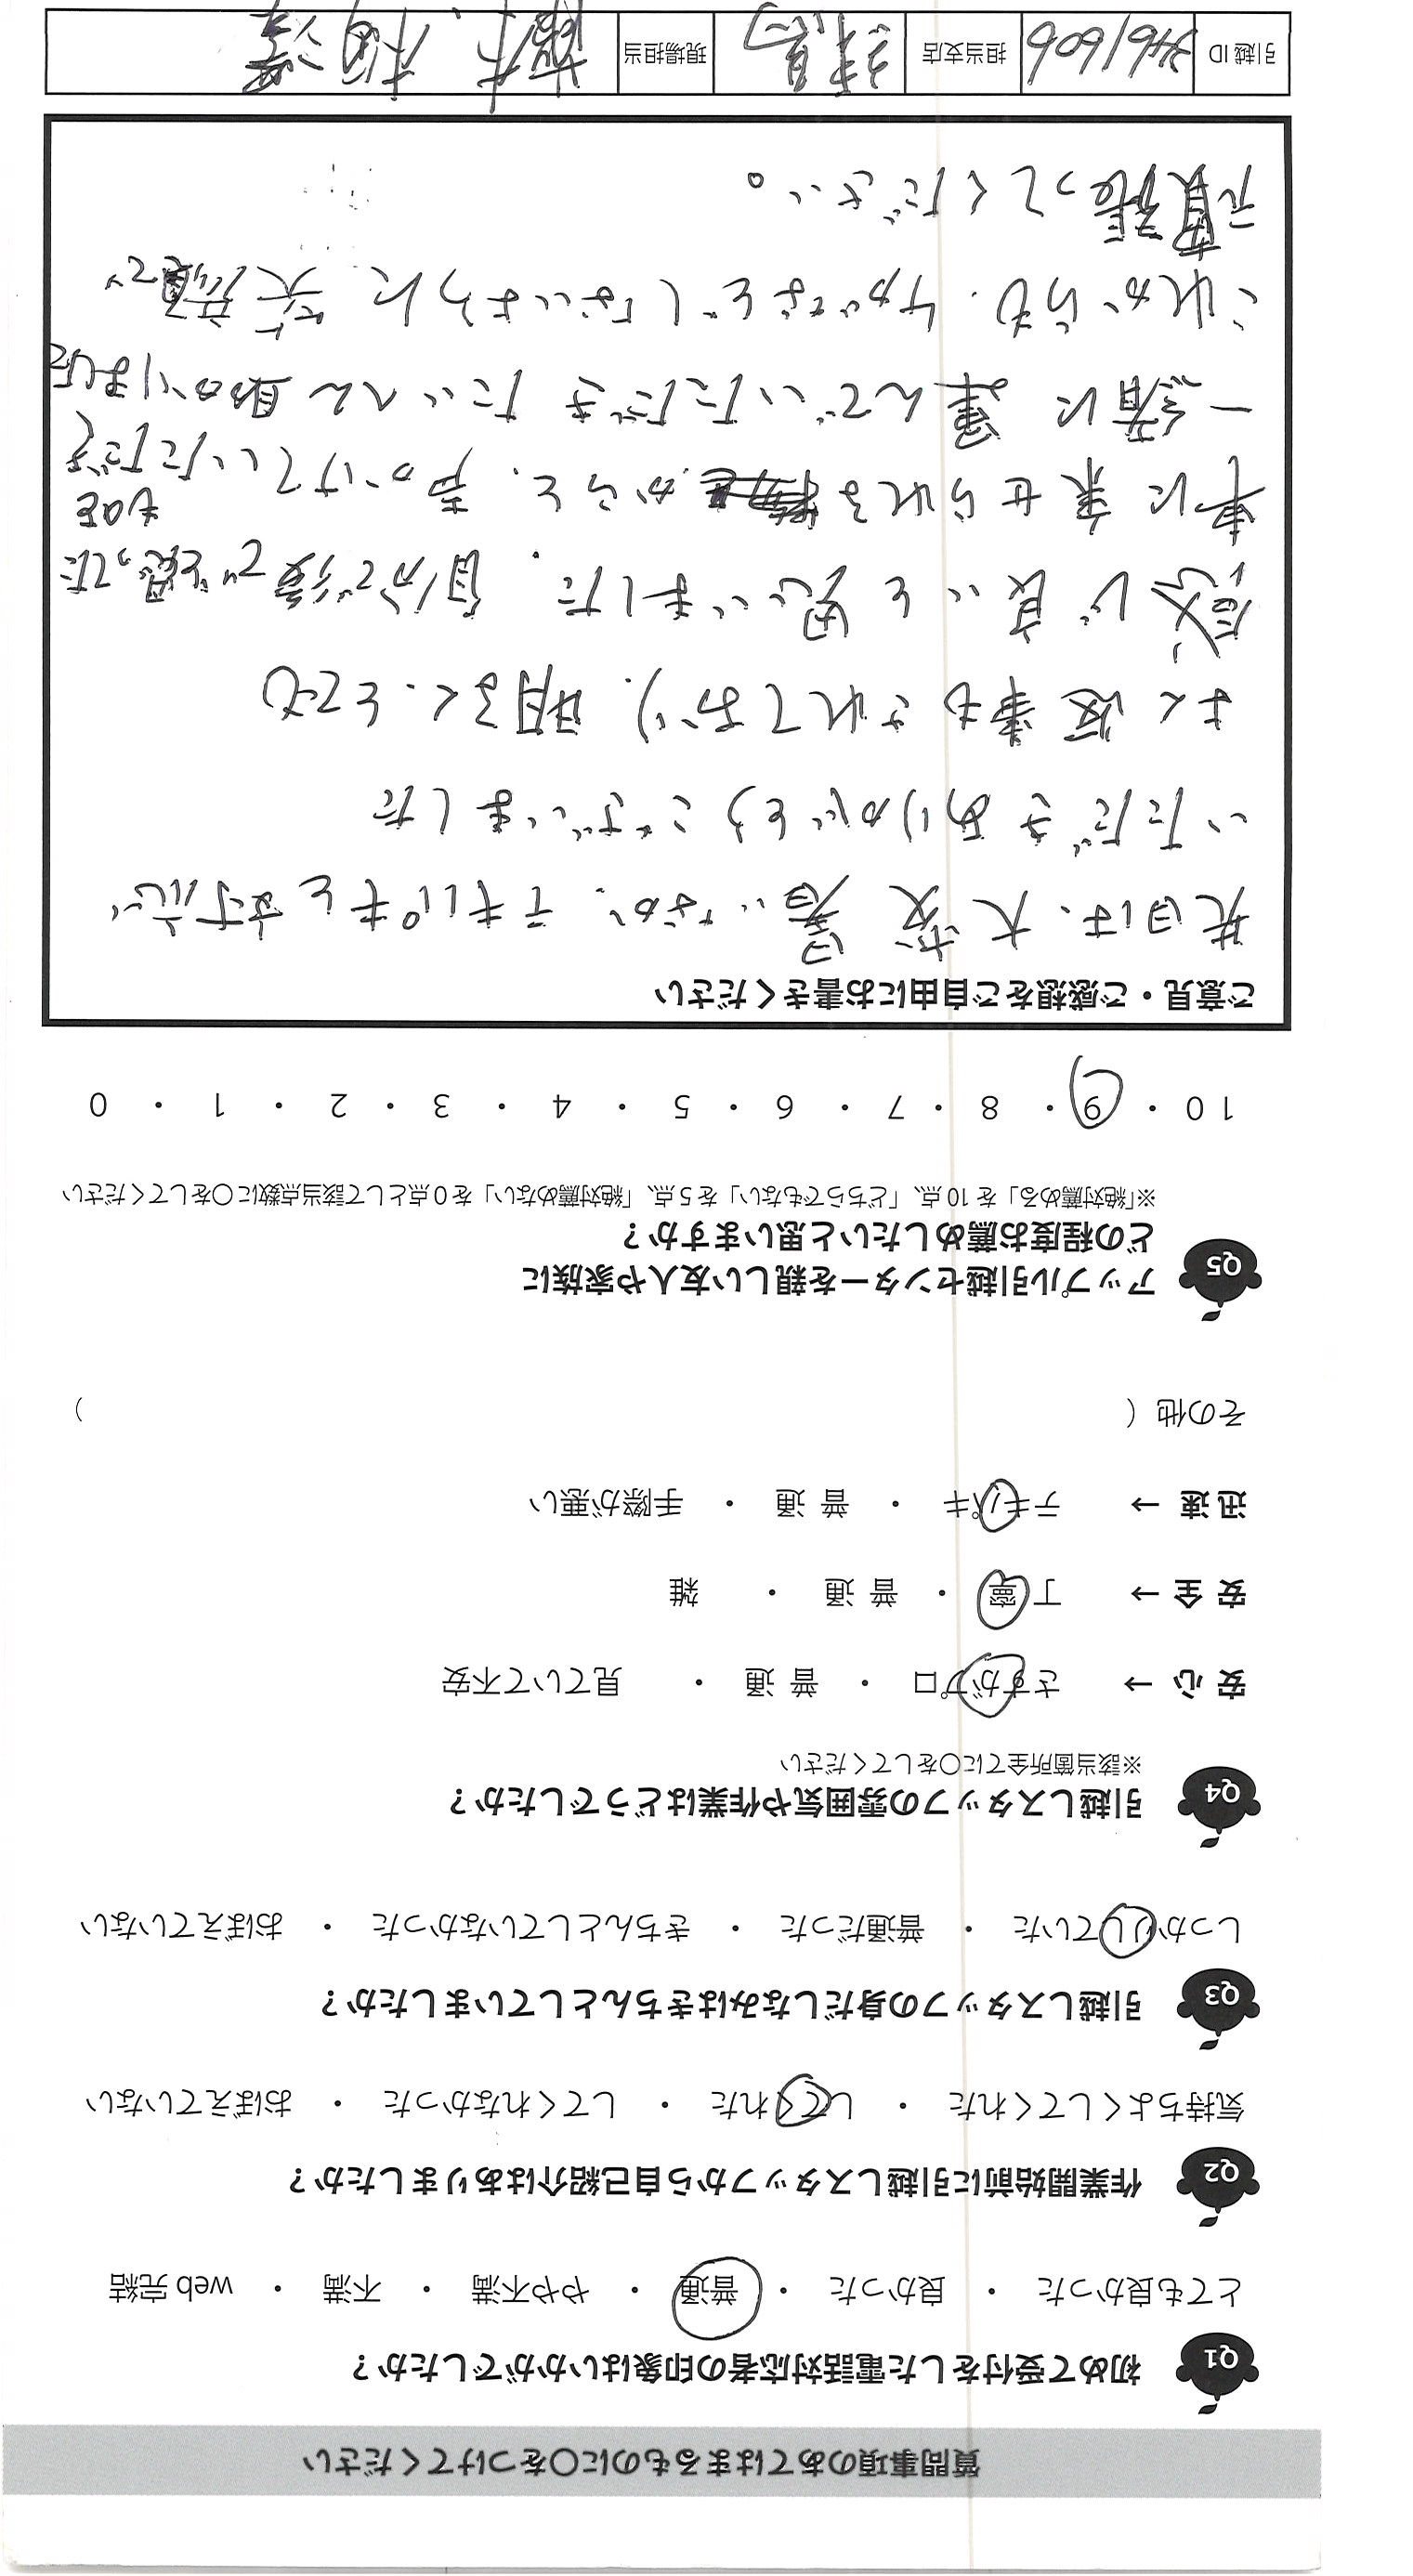 質問事項のあてはまるものに○をつけてください
Q1 初めて受付をした電話対応者の印象はいかがでしたか？
とても良かった ・ 良かった ・ 普通 ・ やや不満 ・ 不満 ・ web 完結
Q2 作業開始前に引越しスタッフから自己紹介はありましたか？
気持ちよくしてくれた ・ してくれた ・ してくれなかった ・ おぼえていない
Q3 引越しスタッフの身だしなみはきちんとしていましたか？
しっかりしていた ・ 普通だった ・ きちんとしていなかった ・ おぼえていない
Q4 引越しスタッフの雰囲気や作業はどうでしたか？
※該当箇所全てに○をしてください
安 心 → さすがプロ ・ 普 通 ・ 見ていて不安
安 全 → 丁 寧 ・ 普 通 ・ 雑
迅 速 → テキパキ ・ 普 通 ・ 手際が悪い
その他（ ）
Q5 アップル引越センターを親しい友人や家族に
どの程度お薦めしたいと思いますか？
※「絶対薦める」を 10 点、「どちらでもない」を 5 点、「絶対薦めない」を 0 点として該当点数に○をしてください
10 ・ 9 ・ 8 ・ 7 ・ 6 ・ 5 ・ 4 ・ 3 ・ 2 ・ 1 ・ 0
ご意見・ご感想をご自由にお書きください
先日は、大変暑いなか、テキパキと対応
いただきありがとうございました
よく返事もされており、明るく、とても
感じ良いと思いました。自分で後で思った
ものを
車に乗せられるからと、声かけていただき
一緒に運んでいただき たいへん助かりました
これからも、ケガなどしないように 笑顔で
頑張ってください。
引越 ID 担当支店 現場担当